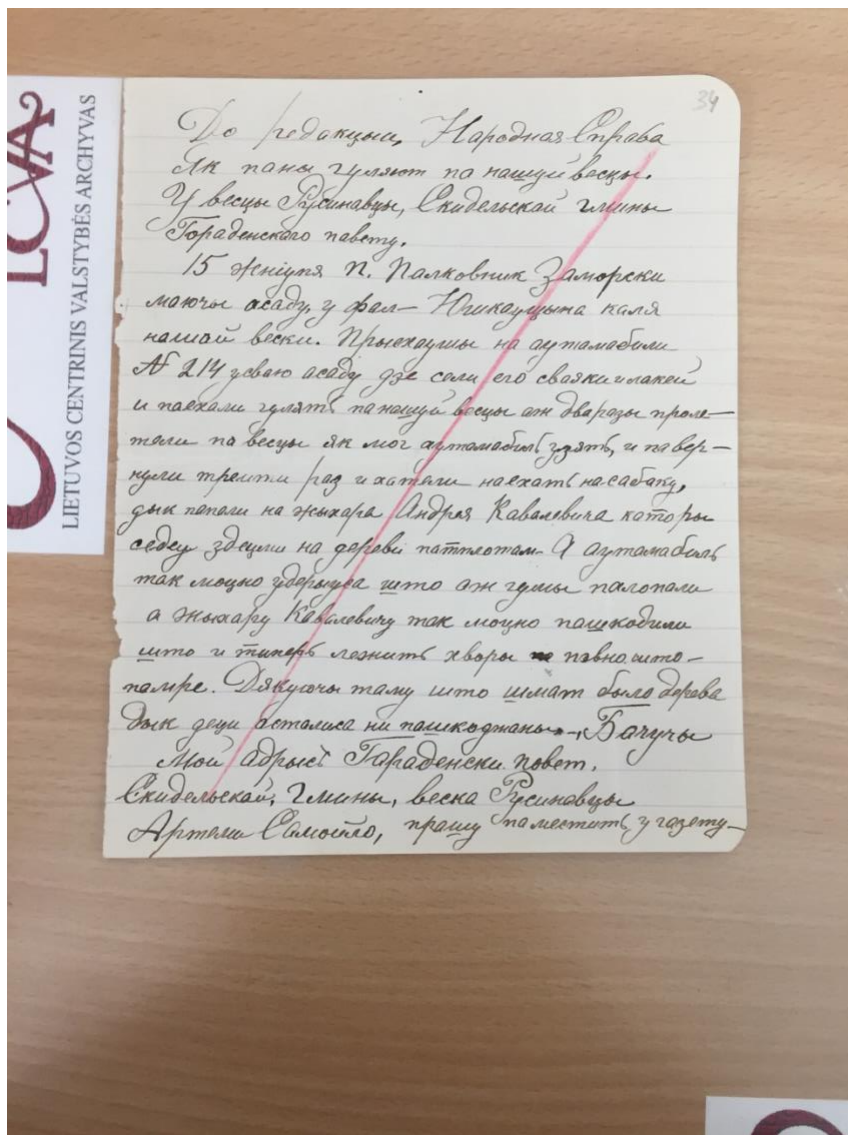 34
До редакцыи, Народная Справа
Як паны гуляют па нашуй весцы.
У весцы Русинавцы, Скидельскай гмины
Гораденского павету.
15 жніуня п. Палковник Заморски
маючы асаду, у фал- Юшкаушына каля
нашай вески. Прыехаушы на аутамабили
N 214 усваю асаду дзе сели его сваяки и лакей
и паехали гулять па нашуй весцы аж два разы проле-
тели па весцы як мог аутамабиль узять, и павер-
нули треити раз и хатели наехать на сабаку,
дык папали на жыхара Андрея Кавалевича каторы
седеу здецми на дереві патплотам. А аутамабиль
так моцно ударыуса што аж гумы палопали
а жыхару Кавалевичу так моцно пашкодили
што и типерь лежить хворы певно што-
памре. Дякуючы таму што шмат было дерева
дык деци осталиса ни пашкоджаны-, Бачучы
Мой адрыс Гараденски повет.
Скидельскай, Гмины, веска Русинавцы
Артем Самойло, прашу паместить у газету-
LCVA
LIETUVOS CENTRINIS VALSTYBĖS ARCHYVAS